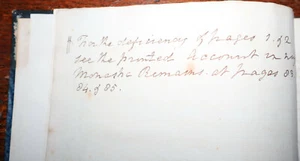 For the deficiency of Pages 1. & 2
see the printed Account in
Monastic Remains. at Pages
84. & 85.